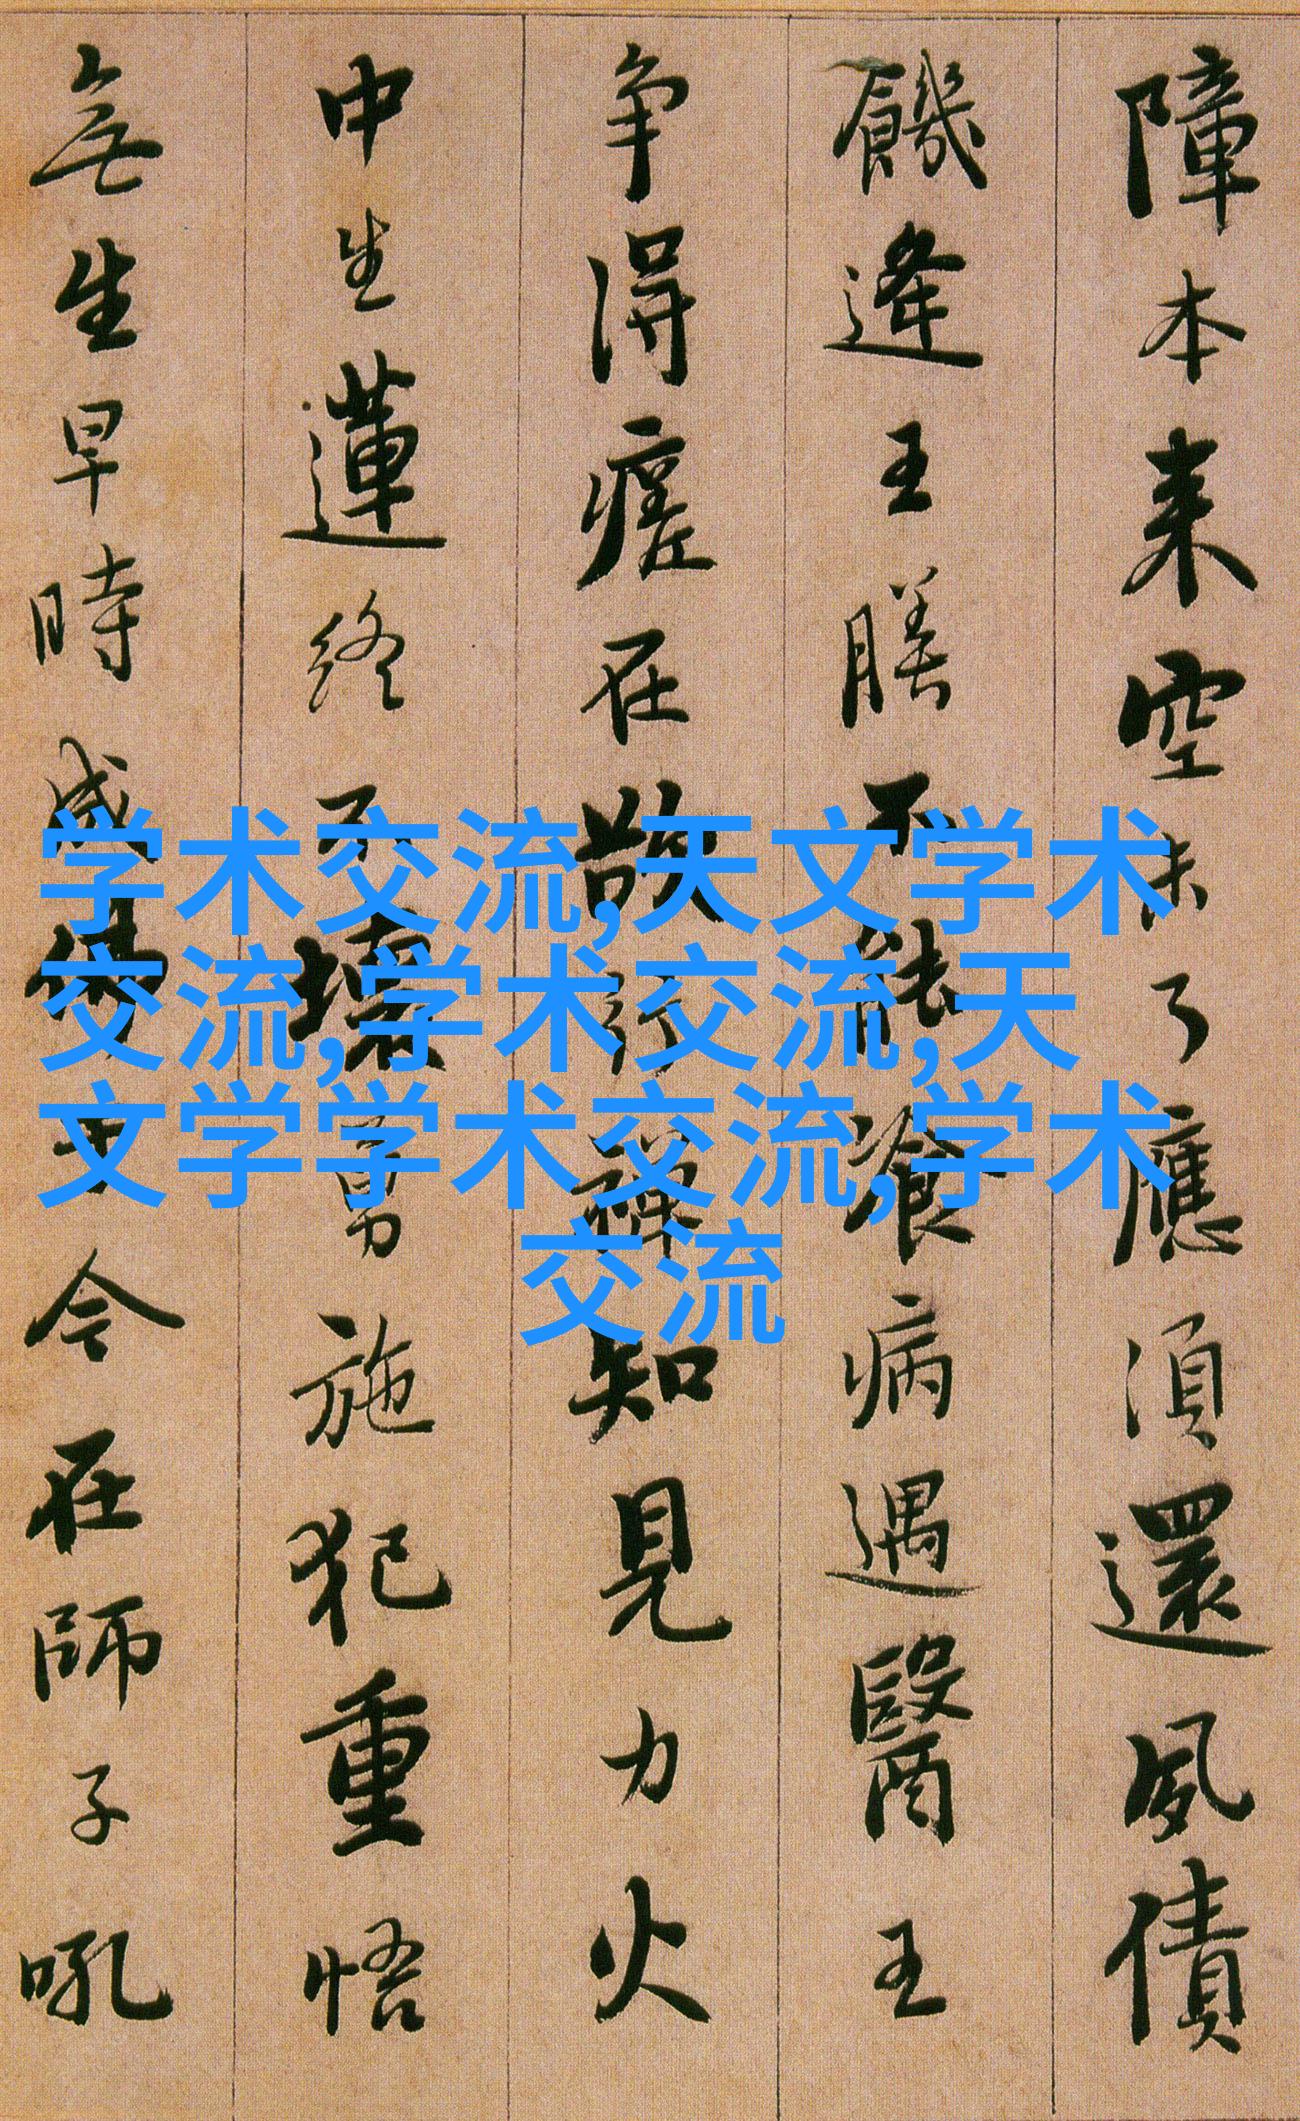 障本来空未了應須還夙債
饑逢王膳不能飡病遇醫王
争得瘥在欲行禅知見力火
中生蓮終不壞勇施犯重悟
無生早時成佛于今在師子吼
学术交流,天文学术
交流,学术交流,天
文学学术交流,学术
交流